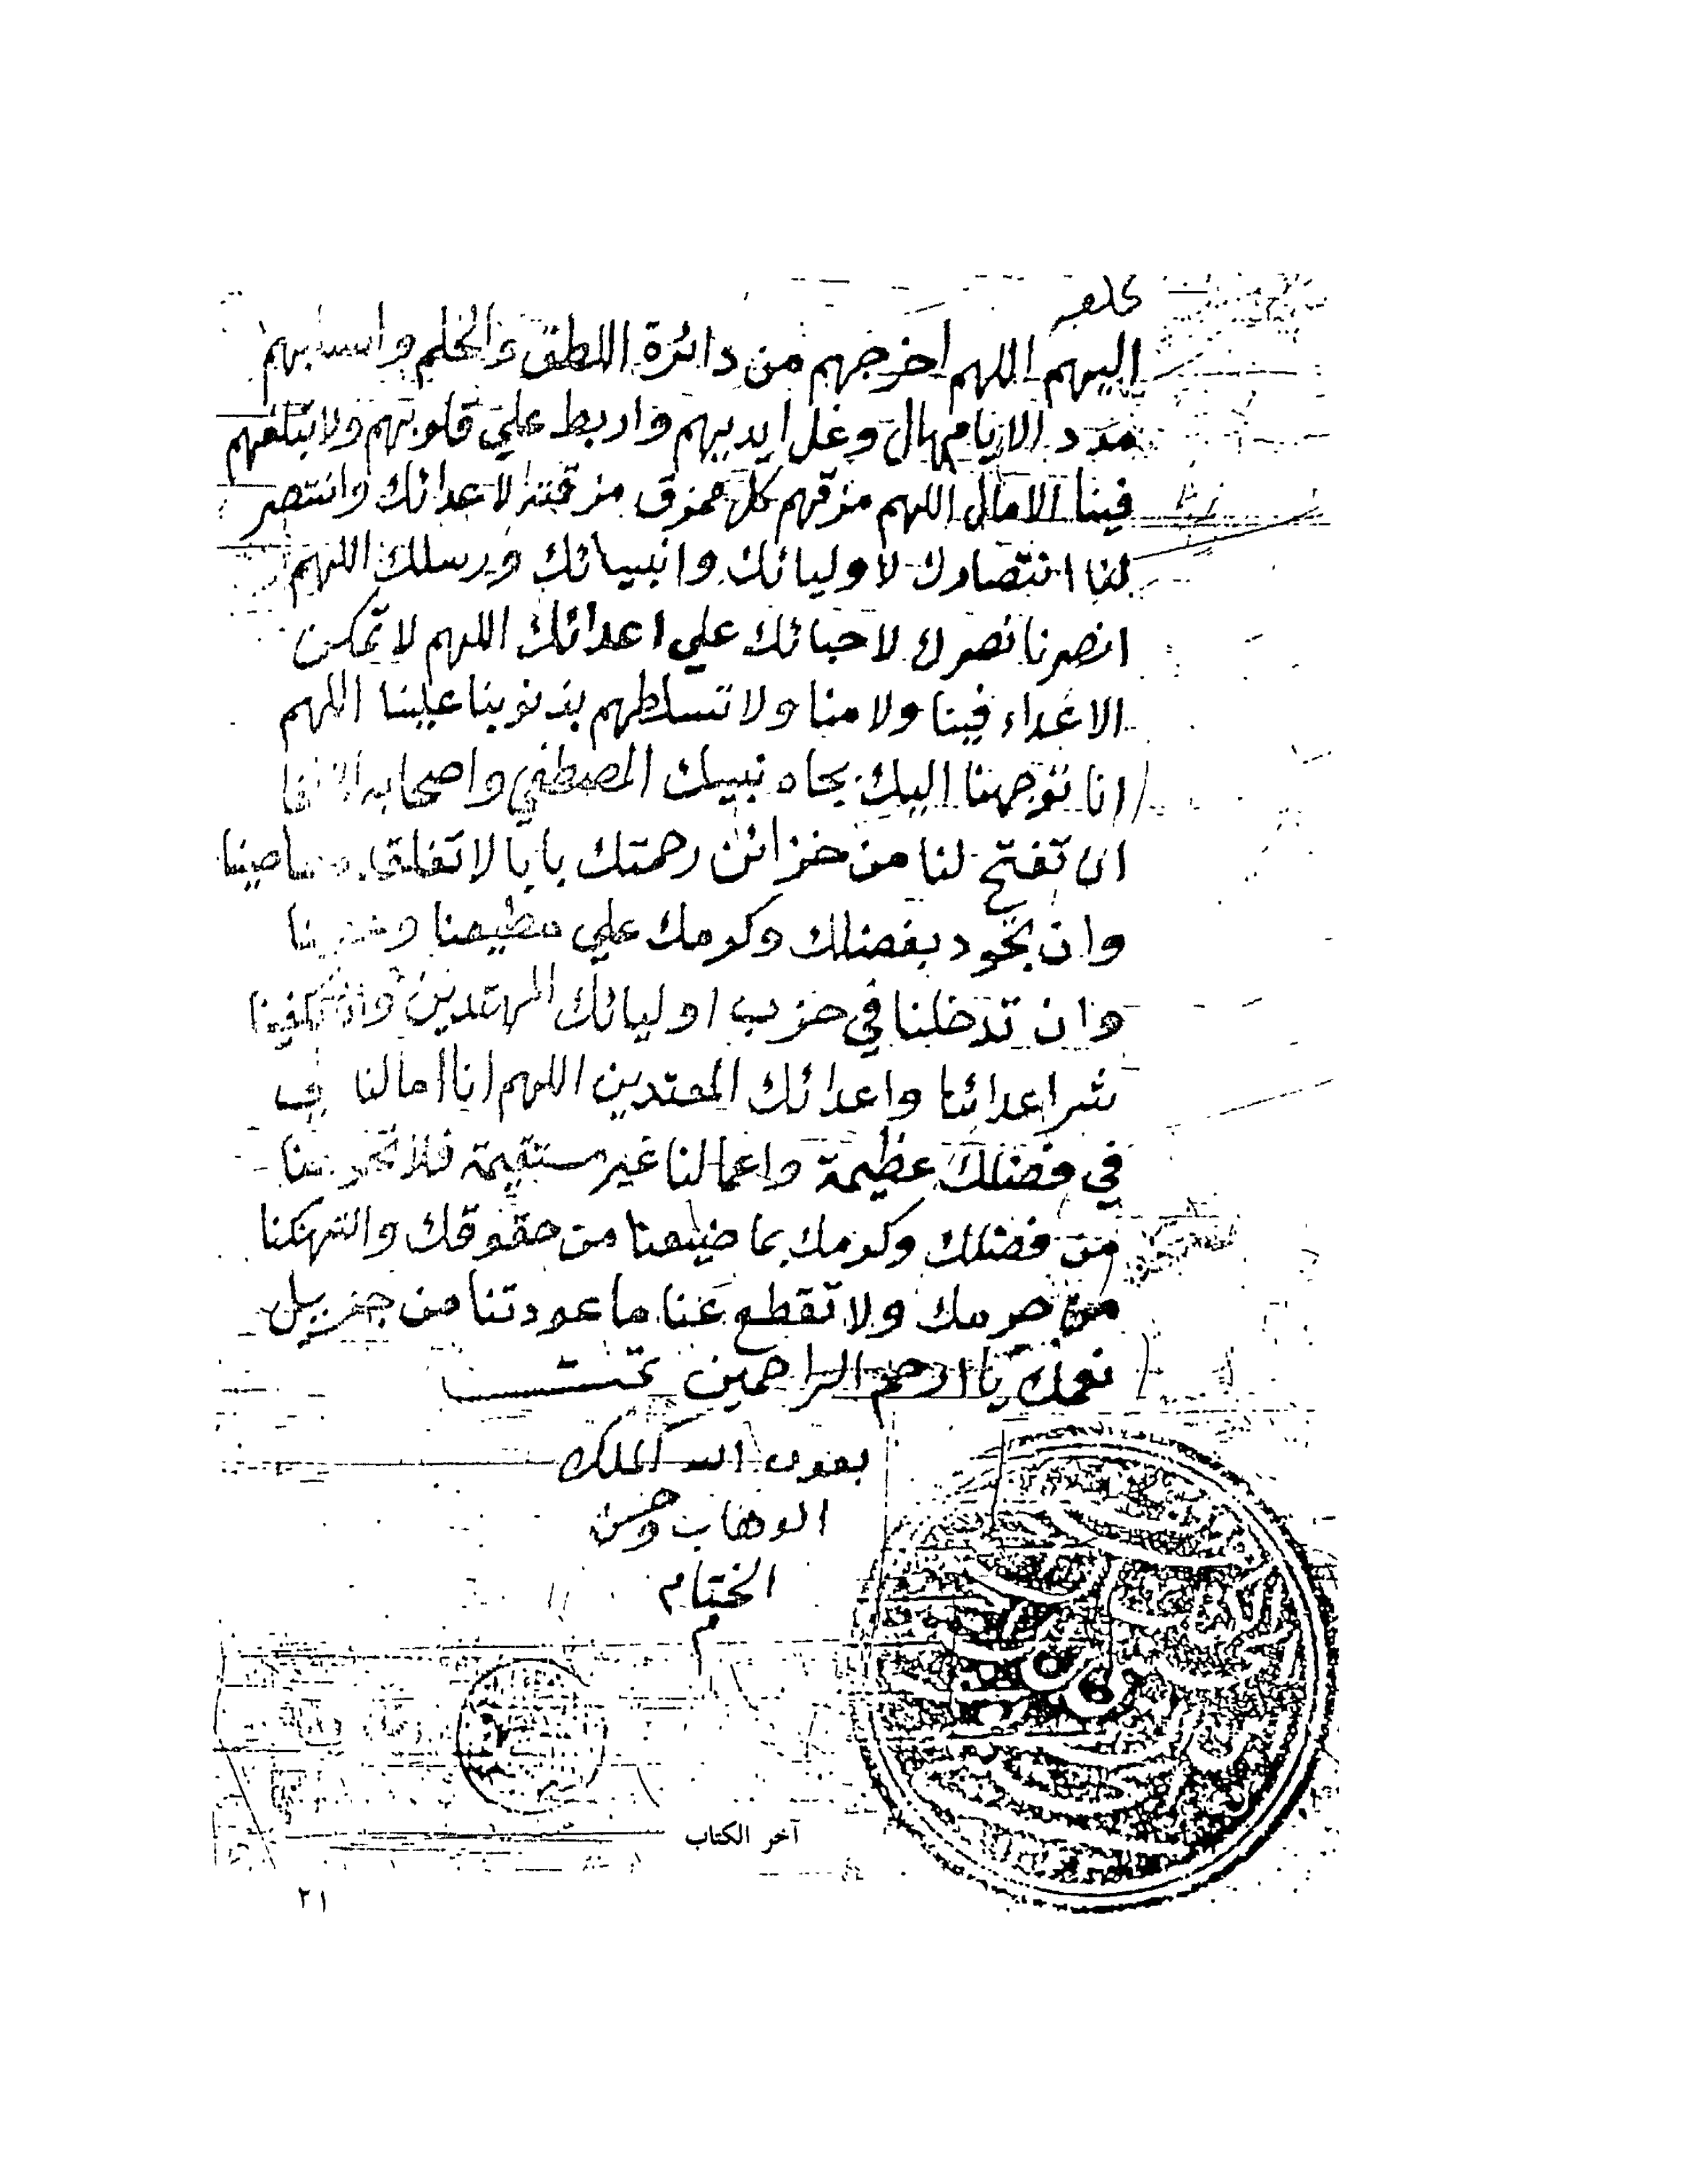 كلهم
اليهم اللهم اخرجهم من دائرة اللطف والحلم واسلبهم
مدد الامهال وغل ايديهم واربط علي قلوبهم ولا تبلغهم
فينا الامال اللهم مزقهم كل ممزق مزقته لاعدائك وانتصر
لنا انتصارك لاوليائك وانبيائك ورسلك اللهم
انصرنا نصرك لاحبائك علي اعدائك اللهم لا تمكن
الاعداء فينا ولا منا ولا تسلطهم بذنوبنا علينا اللهم
انا توجهنا اليك بجاه نبيك المصطفي واصحابه
ان تفتح لنا من خزائن رحمتك بابا لا تغلقه
وان تجود بفضلك وكرمك علي مطيعنا
وان تدخلنا في حزب اوليائك المهتدين وان تكفينا
شر اعدائنا واعدائك المعتدين اللهم ان امالنا
في فضلك عظيمة واعمالنا غير مستقيمة فلا تحرمنا
من فضلك وكرمك بما ضيعنا من حقوقك وانتهكنا
من حرمك ولا تقطع عنا ما عودتنا من جزيل
نعمك يا ارحم الراحمين تمت
بعون الله الملك
الوهاب وحسن
الختام
م
آخر الكتاب
٢١